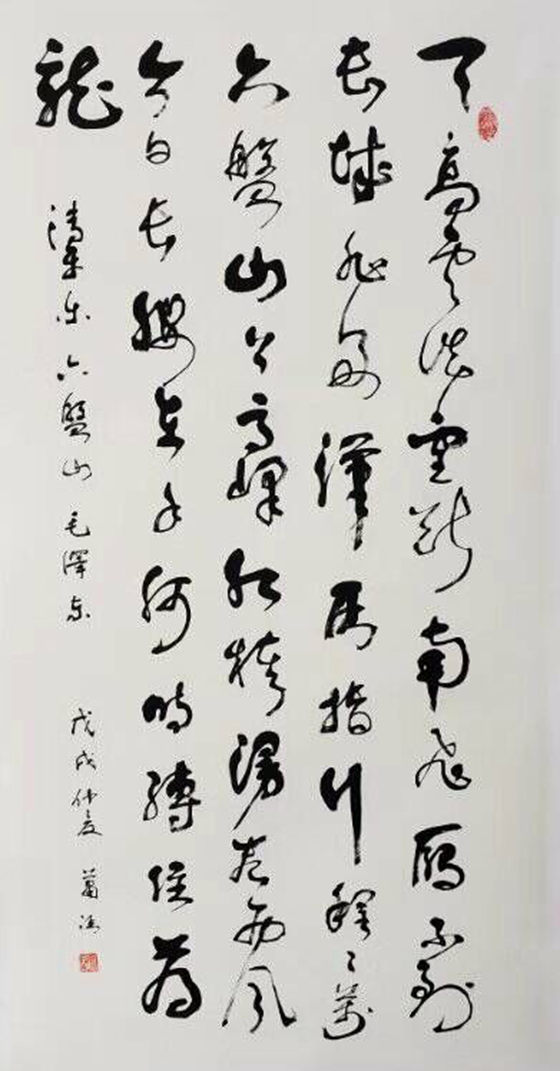 天高云淡望断南飞雁不到
长城非好漢屈指行程二萬
六盤山上高峰红旗漫卷西风
今日长缨在手何时縛住苍
龍
清平乐 六盤山 毛澤东 戊戌仲夏